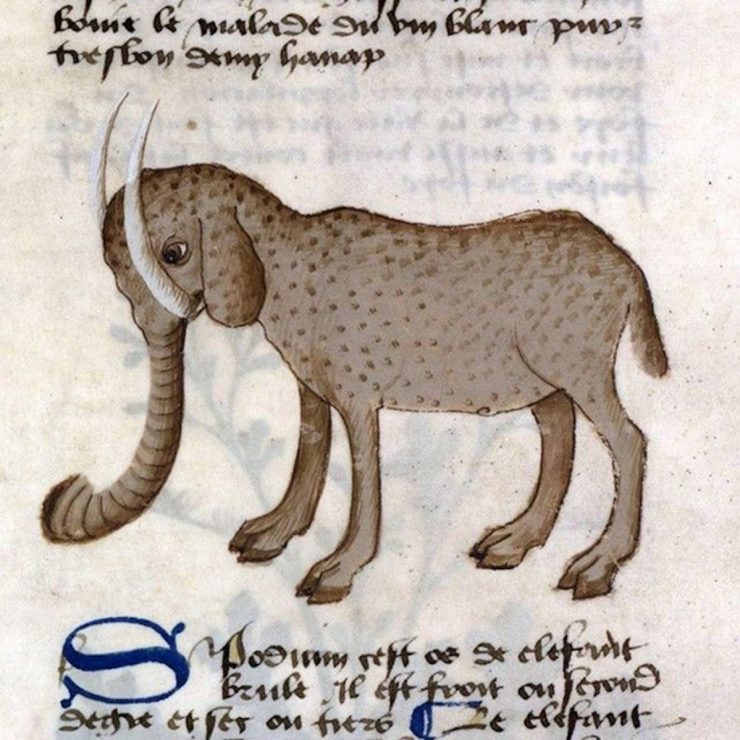 boire le malade du vin blanc puy
tresbon demy hanap
Spodium cest os de elefant
brule Il est froit ou second
degre et sec ou tiers Le elefant